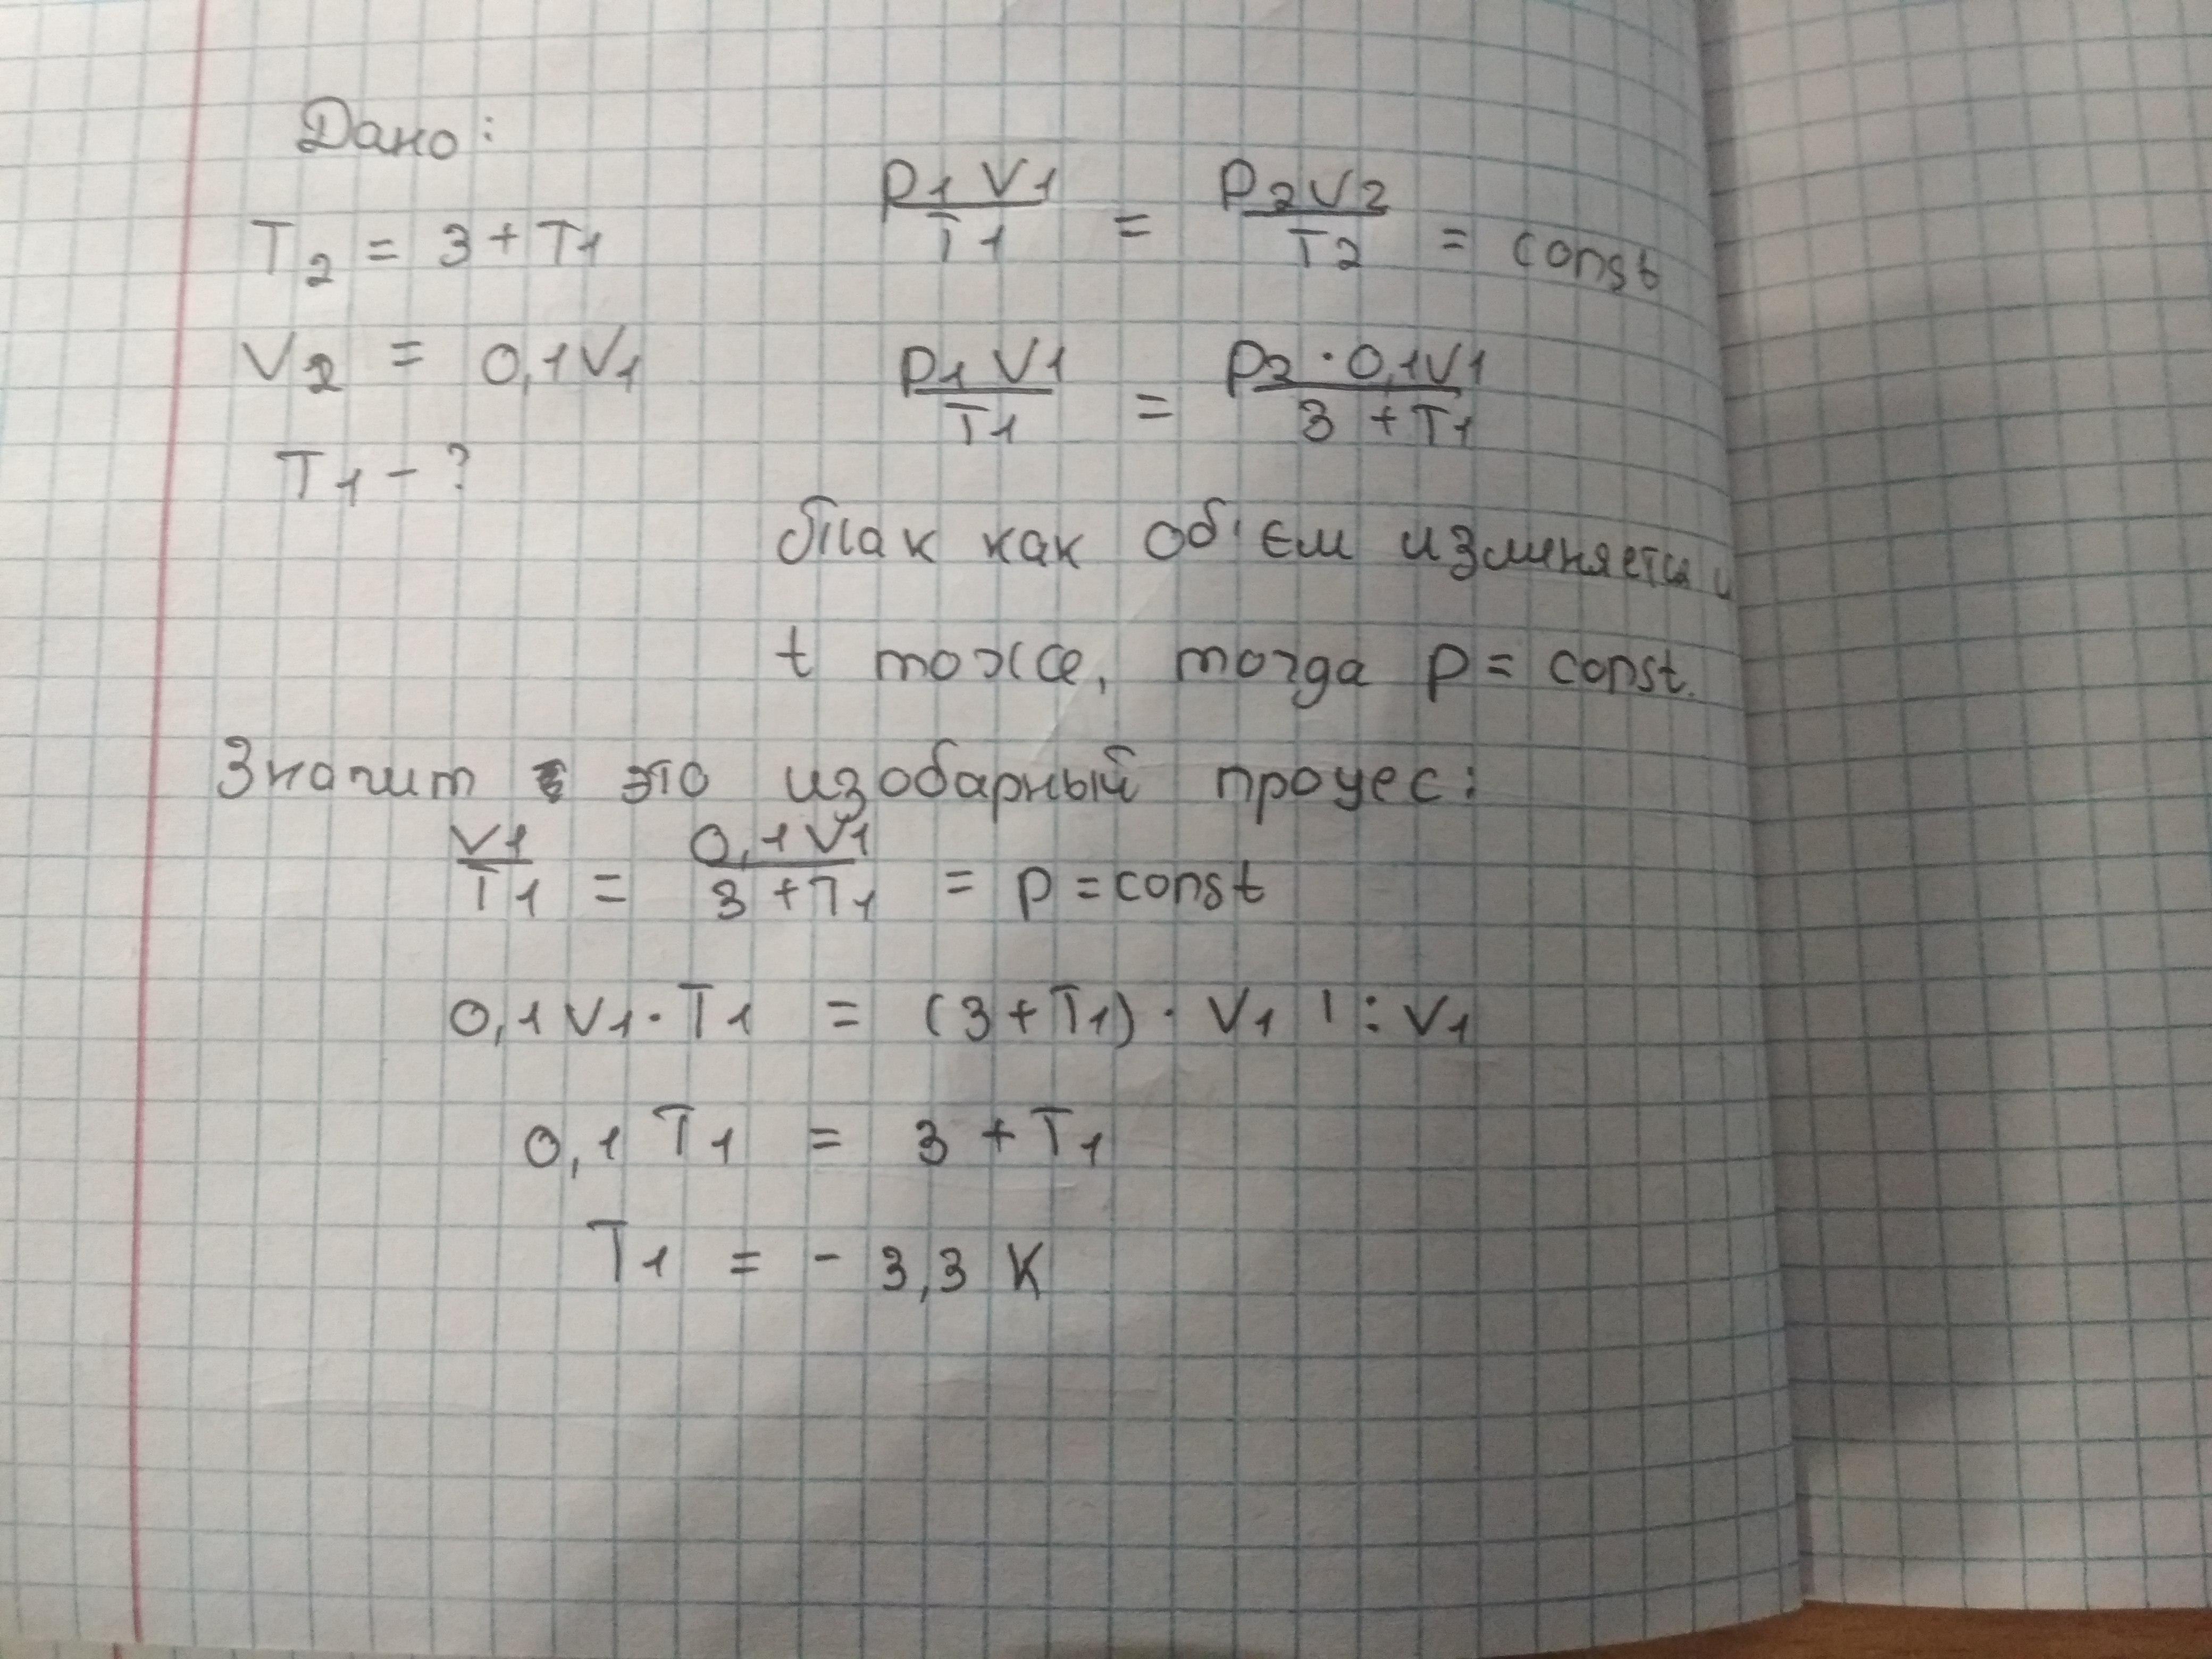 Дано:
T2 = 3 + T1
V2 = 0,1V1
T1 - ?
P1 V1 / T1 = P2 V2 / T2 = const
P1 V1 / T1 = P2 · 0,1V1 / 3 + T1
Так как об'єм изменяется и
t тоже, тогда p = const.
Значит это изобарный процес:
V1 / T1 = 0,1 V1 / 3 + T1 = p = const
0,1 V1 · T1 = (3 + T1) · V1 | : V1
0,1 T1 = 3 + T1
T1 = - 3,3 K